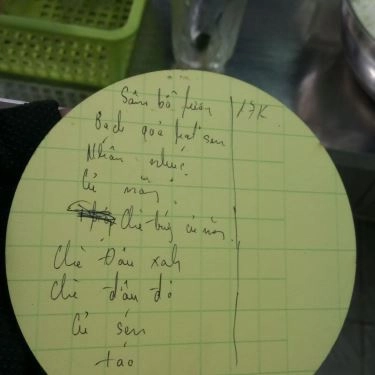 Sâm bổ lượng 17K
Bạch quả hạt sen
Nhãn nhục
Củ năng
Chè bưng củ năng
Chè Đậu xanh
Chè đậu đỏ
Củ sen
táo